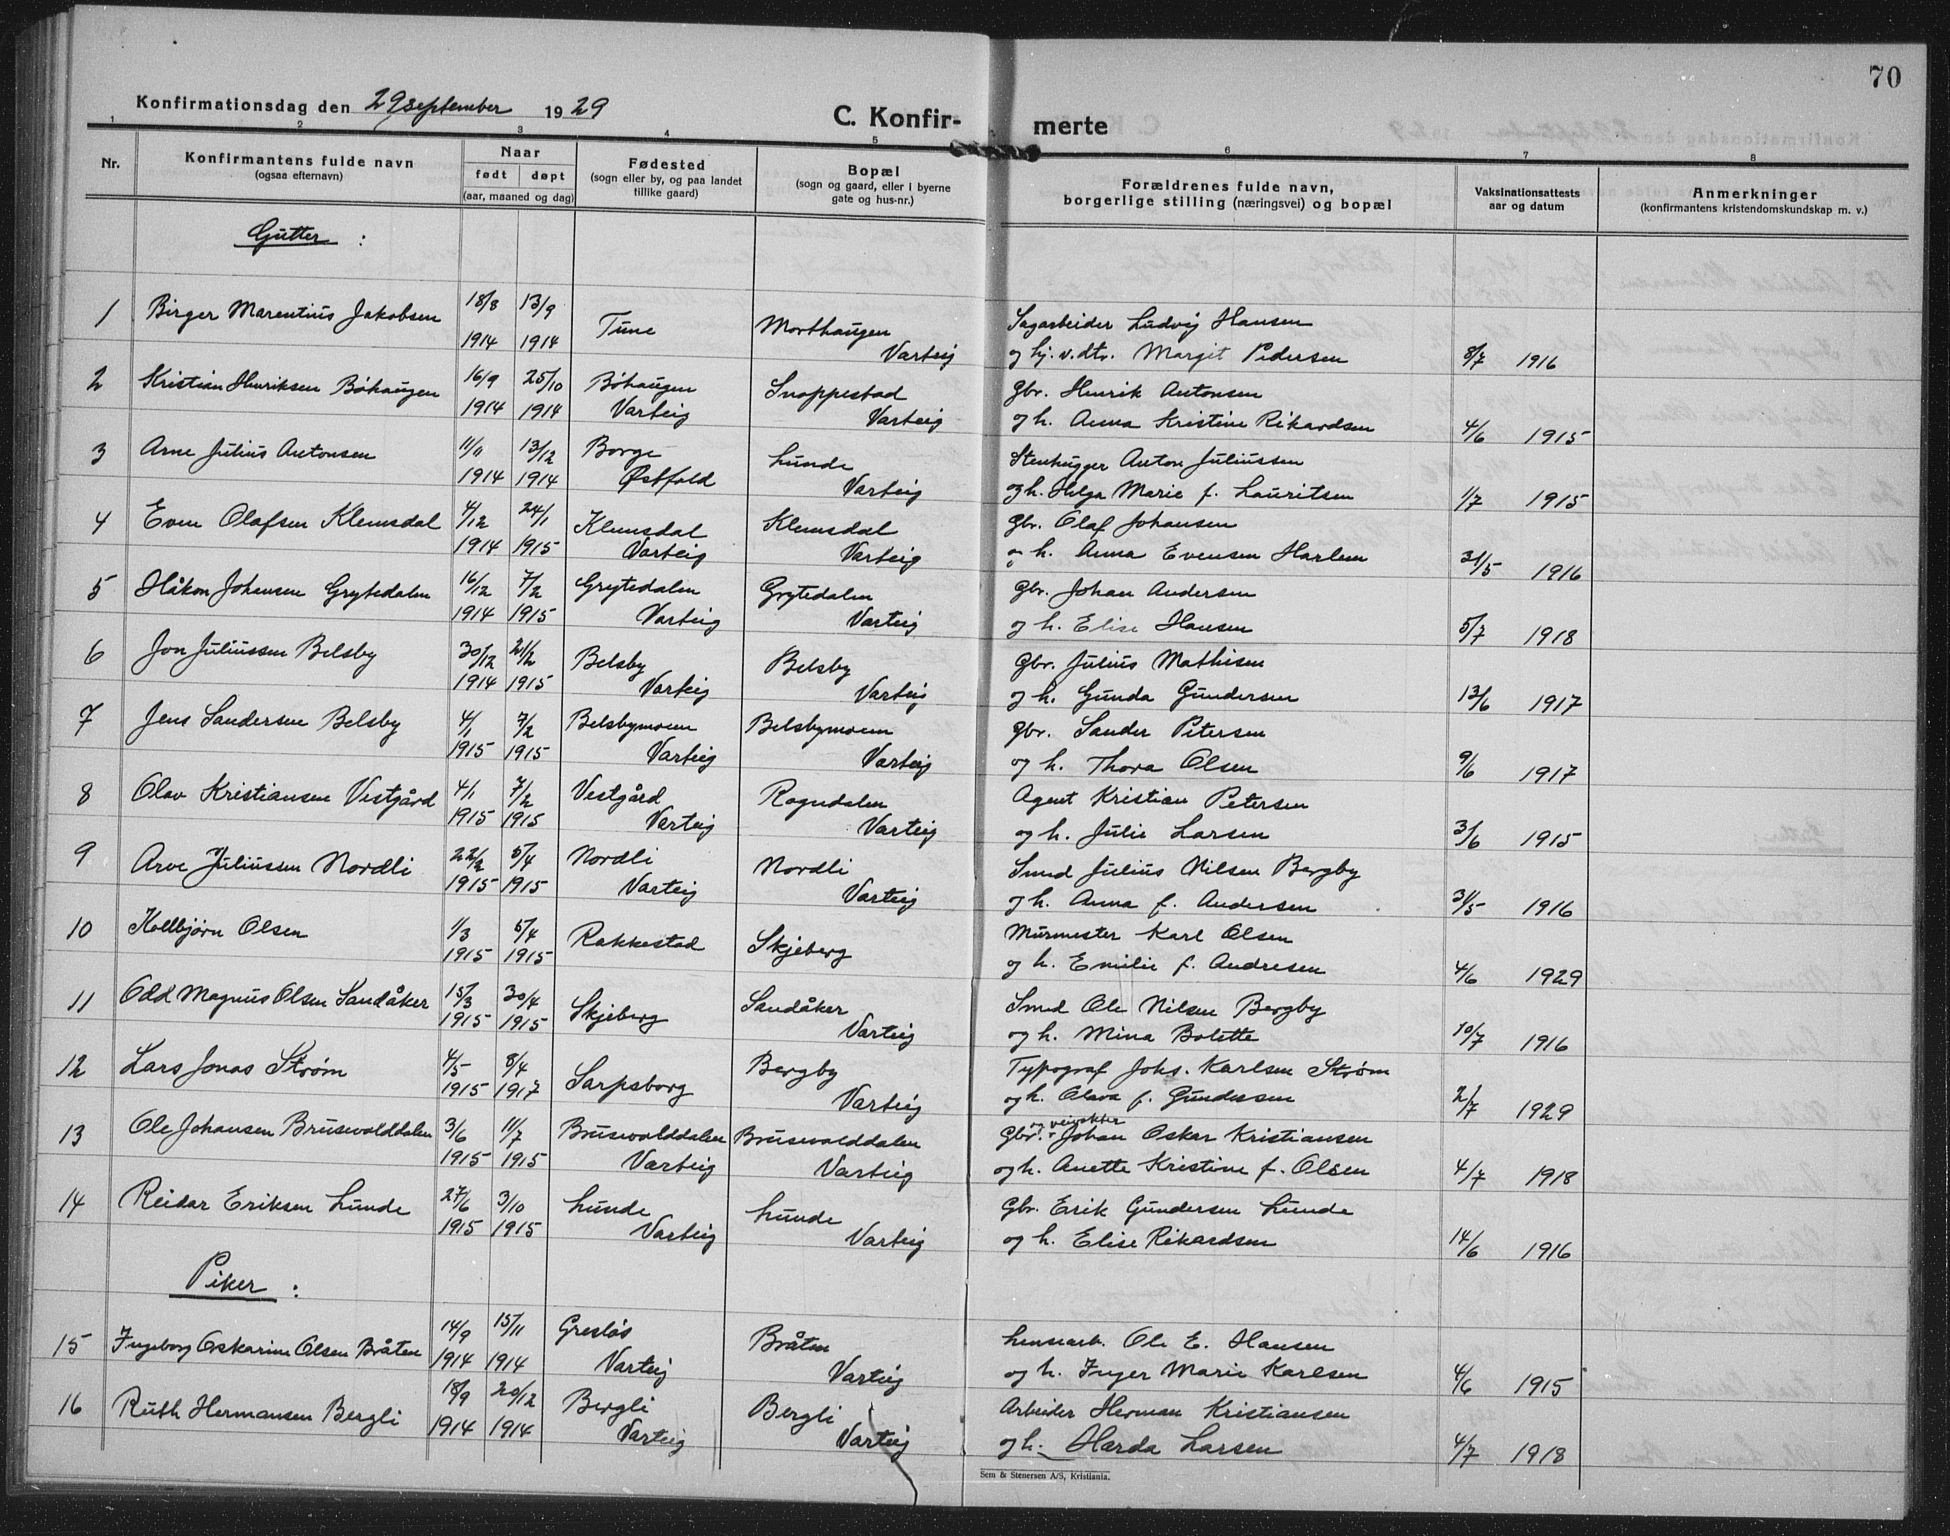 70
Konfirmationsdag den 29 september 1929
C. Konfir-merte
1 2 3 4 5 6 7 8
Nr.
Konfirmantens fulde navn
(ogsaa efternavn)
Naar
født døpt
(aar, maaned og dag)
Fødested
(sogn eller by, og paa landet
tillike gaard)
Bopæl
(sogn og gaard, eller i byerne
gate og hus-nr.)
Forældrenes fulde navn,
borgerlige stilling (næringsvei) og bopæl
Vaksinationsattests
aar og datum
Anmerkninger
(konfirmantens kristendomskundskap m. v.)
Gutter :
1 Birger Marentius Jakobsen 18/8 13/9 Tune Morthaugen Sagarbeider Ludvig Hansen
1914 1914 Varteig og hj. v. dtr. Margit Pedersen 8/7 1916
2 Kristian Henriksen Bøhaugen 16/9 25/10 Bøhaugen Snoppestad Gbr. Henrik Antonsen
1914 1914 Varteig Varteig og h. Anna Kristine Rikardsen 4/6 1915
3 Arne Julius Antonsen 11/11 13/12 Borge Lunde Stenhugger Anton Juliussen
1914 1914 Østfold Varteig og h. Helga Marie f. Lauritsen 1/7 1915
4 Even Olafsen Klemsdal 4/12 24/1 Klemsdal Klemsdal Gbr. Olaf Johansen
1914 1915 Varteig Varteig og h. Anna Evensen Harlem 31/5 1916
5 Håkon Johansen Grytedalen 16/12 7/2 Grytedalen Grytedalen Gbr. Johan Andersen
1914 1915 Varteig Varteig og h. Elise Hansen 5/7 1918
6 Jon Juliussen Belsby 30/12 21/2 Belsby Belsby Gbr. Julius Mathisen
1914 1915 Varteig Varteig og h. Gunda Gundersen 13/6 1917
7 Jens Sandersen Belsby 4/1 7/2 Belsbymoen Belsbymoen Gbr. Sander Petersen
1915 1915 Varteig Varteig og h. Thora Olsen 9/6 1917
8 Olav Kristiansen Vestgård 4/1 7/2 Vestgård Rogndalen Agent Kristian Petersen
1915 1915 Varteig Varteig og h. Julie Larsen 3/6 1915
9 Arve Juliussen Nordli 22/2 5/4 Nordli Nordli Smed Julius Nilsen Bergby
1915 1915 Varteig Varteig og h. Anna f. Andersen 31/5 1916
10 Kolbjørn Olsen 1/3 5/4 Rakkestad Skjeberg Murmester Karl Olsen
1915 1915 og h. Emilie f. Andresen 4/6 1929
11 Odd Magnus Olsen Sandåker 15/3 30/4 Skjeberg Sandåker Smed Ole Nilsen Bergby
1915 1915 Varteig og h. Mina Bolette 10/7 1916
12 Lars Jonas Strøm 4/5 8/4 Sarpsborg Bergby Typograf Johs. Karlsen Strøm
1915 1917 Varteig og h. Olava f. Gundersen 2/7 1929
13 Ole Johansen Brusevolddalen 3/6 11/7 Brusevolddalen Brusevolddalen Gbr. og veivokter Johan Oskar Kristiansen
1915 1915 Varteig Varteig og h. Anette Kristine f. Olsen 4/7 1918
14 Reidar Eriksen Lunde 27/6 3/10 Lunde Lunde Gbr. Erik Gundersen Lunde
1915 1915 Varteig Varteig og h. Elise Rikardsen 14/6 1916
Piker :
15 Ingeborg Oskarine Olsen Bråten 14/9 15/11 Gresløs Bråten Lensearb. Ole E. Hansen
1914 1914 Varteig Varteig og h. Inger Marie Karlsen 4/6 1915
16 Ruth Hermansen Bergli 18/9 20/12 Bergli Bergli Arbeider Herman Kristiansen
1914 1914 Varteig Varteig og h. Harda Larsen 4/7 1918
Sem & Stenersen A/S, Kristiania.